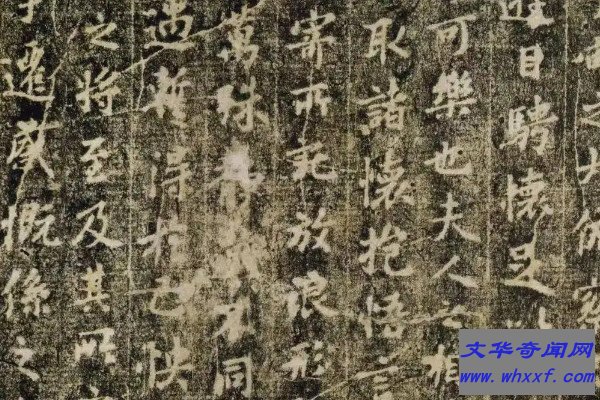 之大俯察
遊目騁懷足
可樂也夫人之相
取諸懷抱悟言
寄所託放浪形
萬殊靜躁不同
遇暫得於己快
之將至及其所
遷感慨係之
文华奇闻网
www.whxxf.com